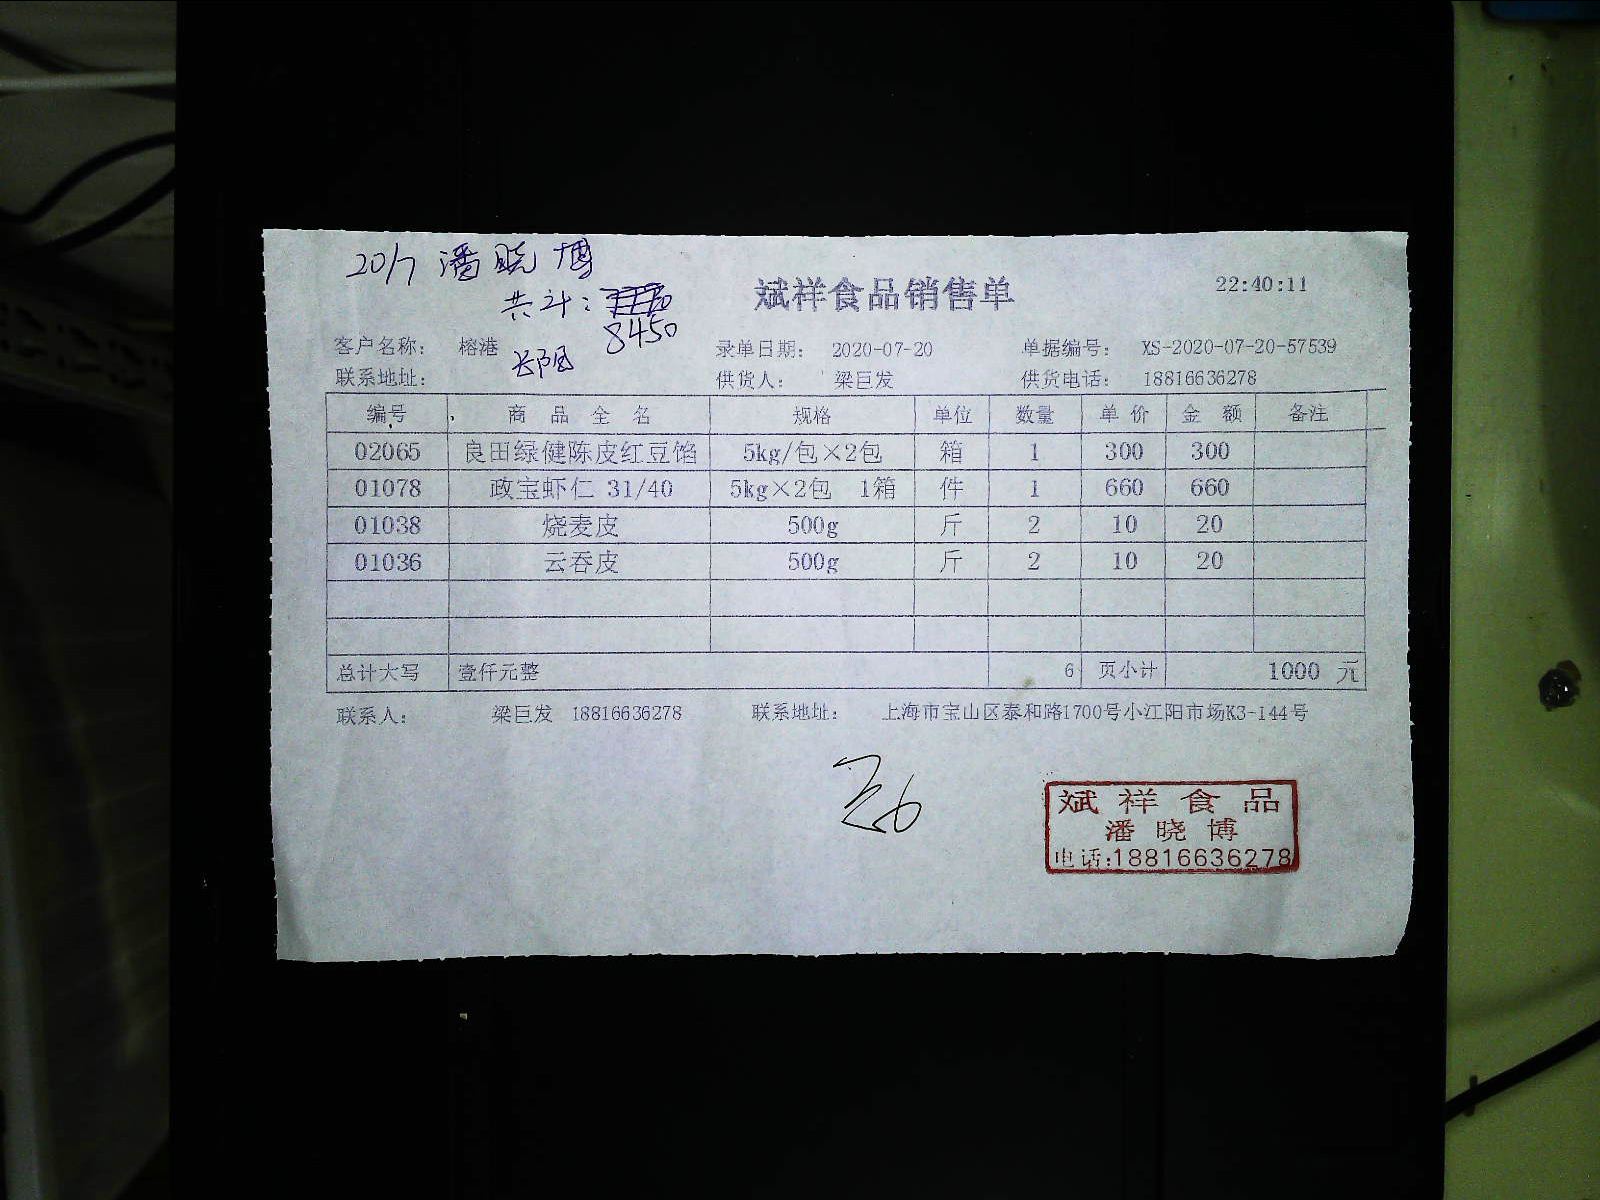 20/7 潘晓博
共计：
8450
斌祥食品销售单
22:40:11
客户名称： 榕港 录单日期： 2020-07-20 单据编号： XS-2020-07-20-57539
联系地址： 供货人： 梁巨发 供货电话： 18816636278
编号 商品全名 规格 单位 数量 单价 金额 备注
02065 良田绿健陈皮红豆馅 5kg/包×2包 箱 1 300 300
01078 政宝虾仁 31/40 5kg×2包 1箱 件 1 660 660
01038 烧麦皮 500g 斤 2 10 20
01036 云吞皮 500g 斤 2 10 20
总计大写 壹仟元整 6 页小计 1000 元
联系人： 梁巨发 18816636278 联系地址： 上海市宝山区泰和路1700号小江阳市场K3-144号
斌祥食品
潘晓博
电话:18816636278